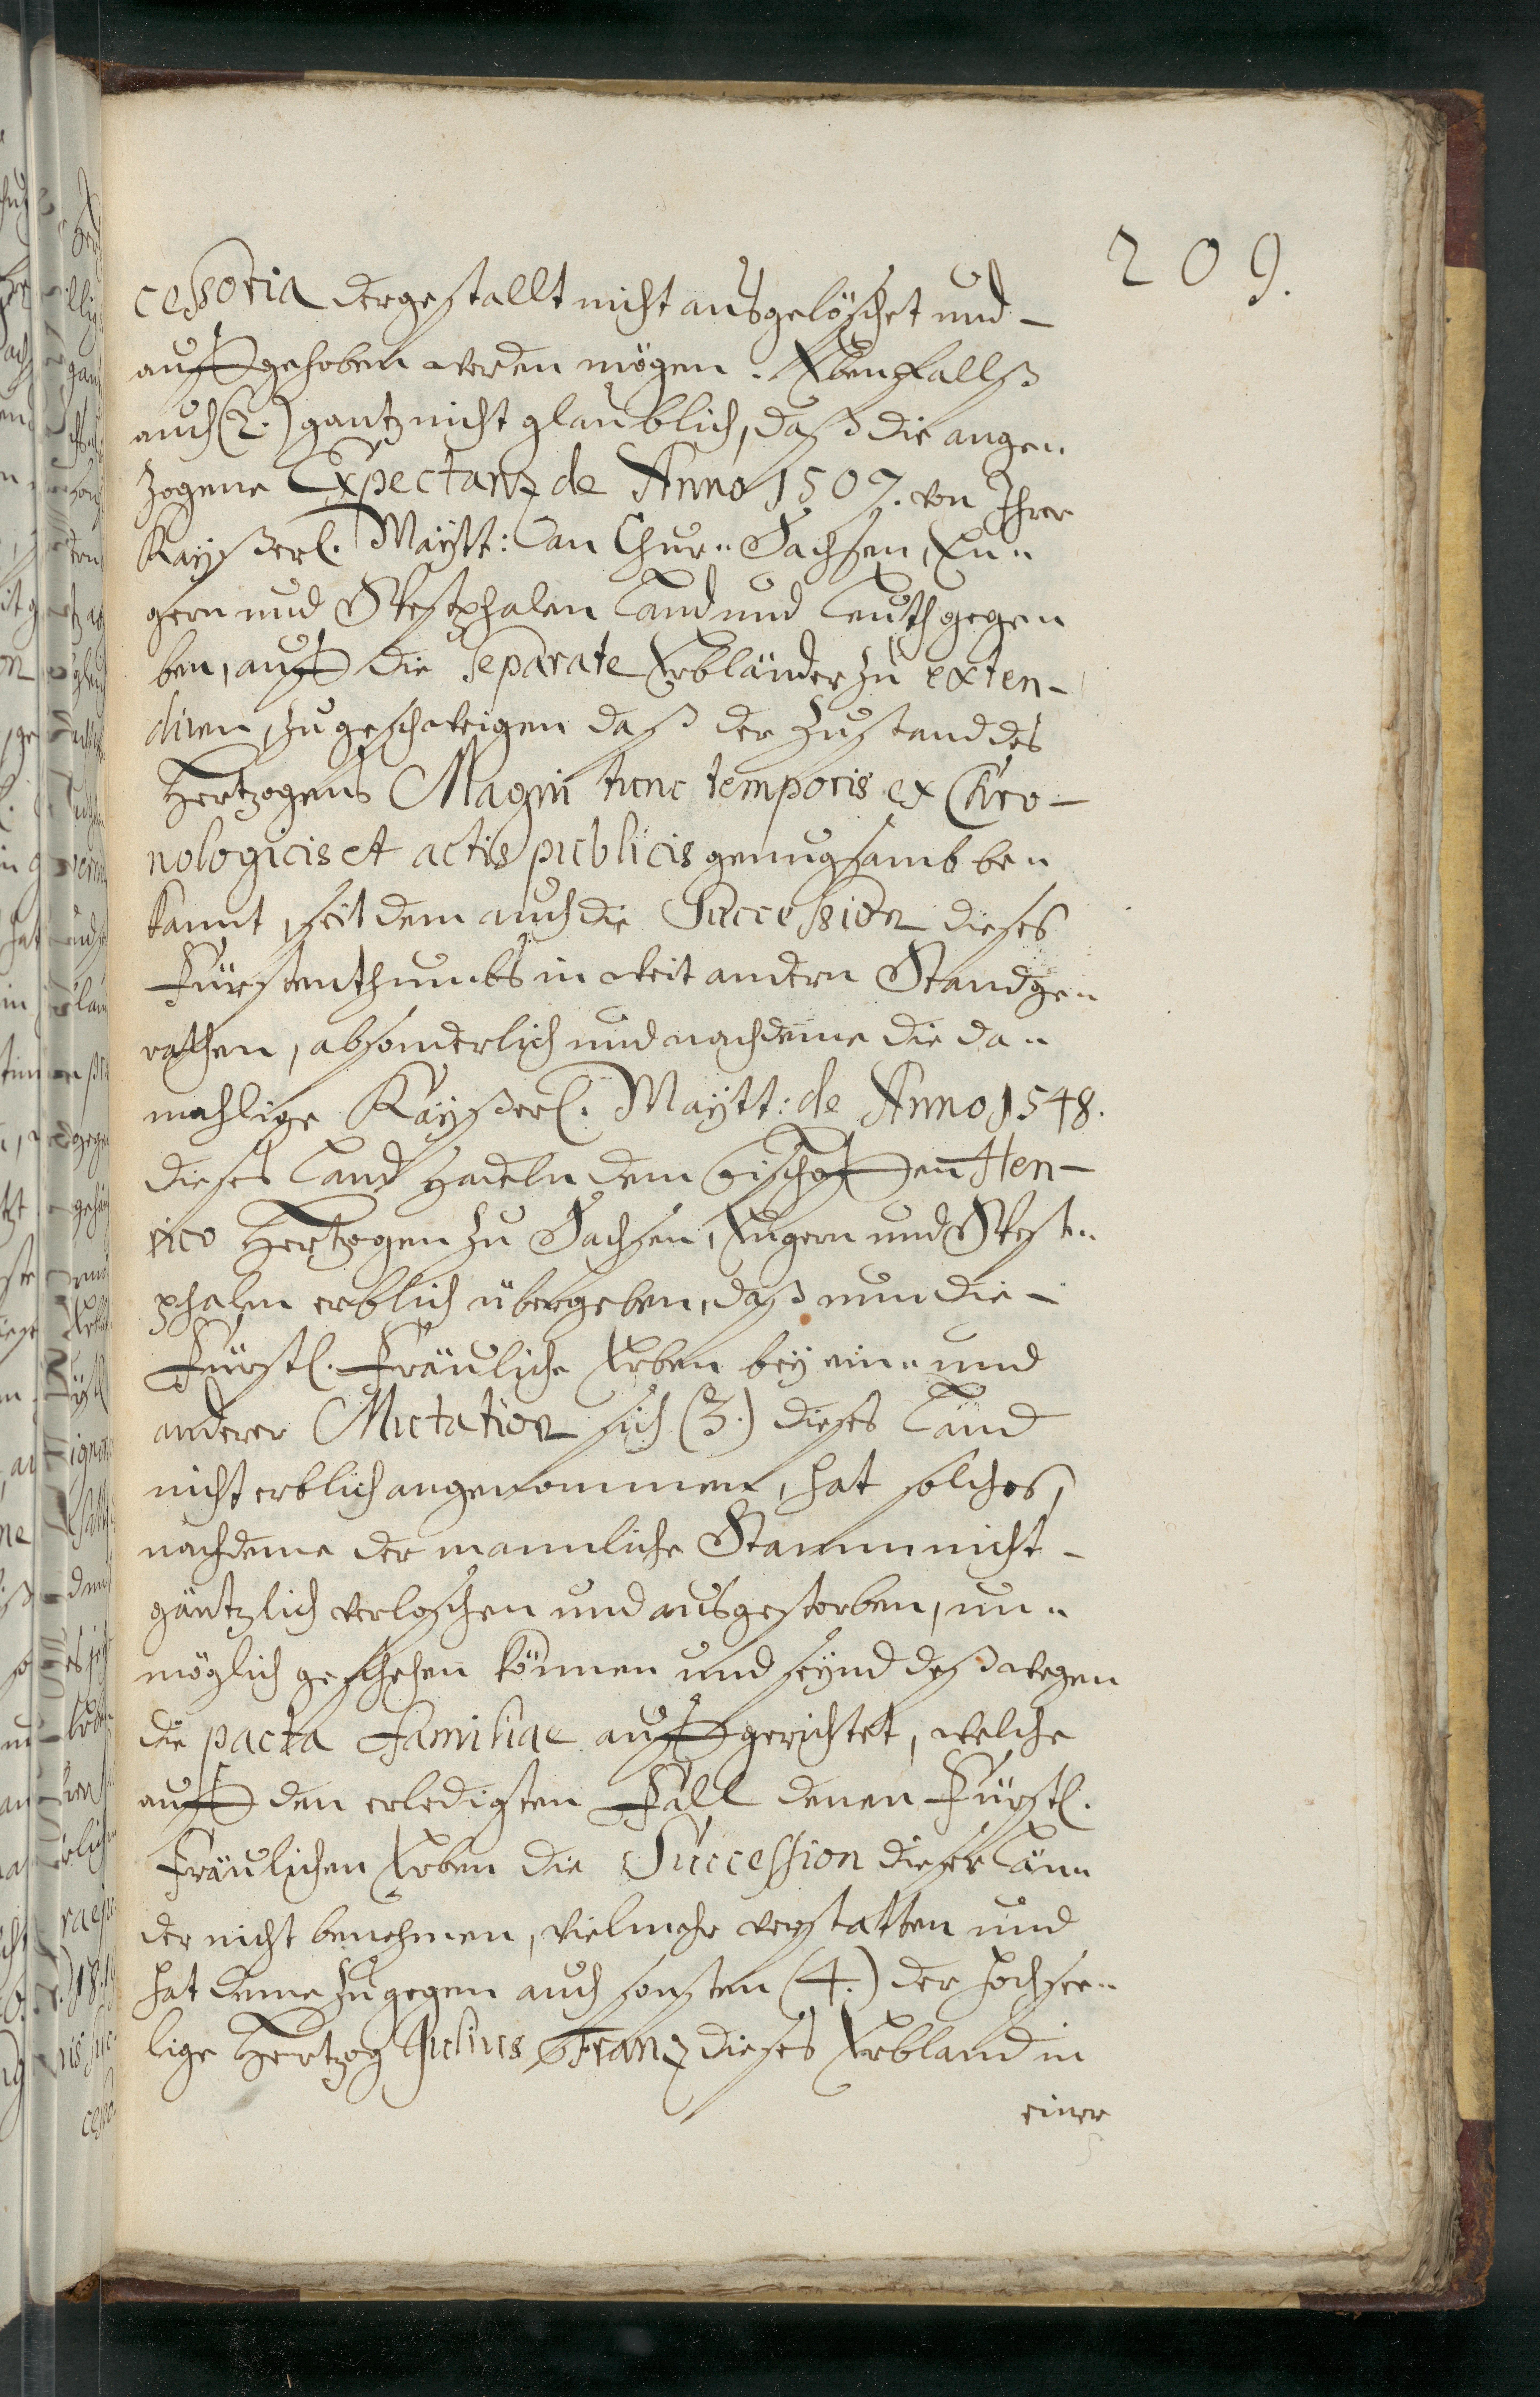 209.
cessoria dergestallt nicht ausgelöschet und
auffgehoben werden mögen. Ebenfallß
auch (2.) gantz nicht glaublich, daß die ange„
zogene Expectanz de Anno 1507. von Ihrer
Kayßerl. Maytt: an Chur„ Sachsen, En„
gern und Westphalen Land und Leuth gege„
ben, auff die separate Erbländer zu exten-
diren, zu geschweigen daß der Zustand des
Hertzogens Magni tunc temporis ex Chro-
nologicis et actis publicis genugsamb be„
kannt, seit dem auch die Succession dieses
Fürstenthumbs in weit andern Stand ge„
rathen, absonderlich und nachdeme die da„
mahlige Kayßerl. Maytt: de Anno 1548.
dieses Land Hadeln dem Bischoffen Hen-
rico Hertzogen zu Sachsen, Engern und West„
phalen erblich übergeben, daß nun die
Fürstl. Fräuliche Erben bey ein„ und
anderer Mutation sich (3.) dieses Land
nicht erblich angenommen, hat solches,
nachdeme der mannliche Stamm nicht
gäntzlich verloschen und ausgestorben, un„
möglich geschehen können und seynd deßwegen
die pacta familiae auffgerichtet, welche
auff den erledigten Fall denen Fürstl.
Fräulichen Erben die Succession dieser Län„
der nicht benehmen, vielmehr verstatten und
hat deme zugegen auch sonsten (4.) der hochsee„
lige Hertzog Julius Franz dieses Erbland in
einer